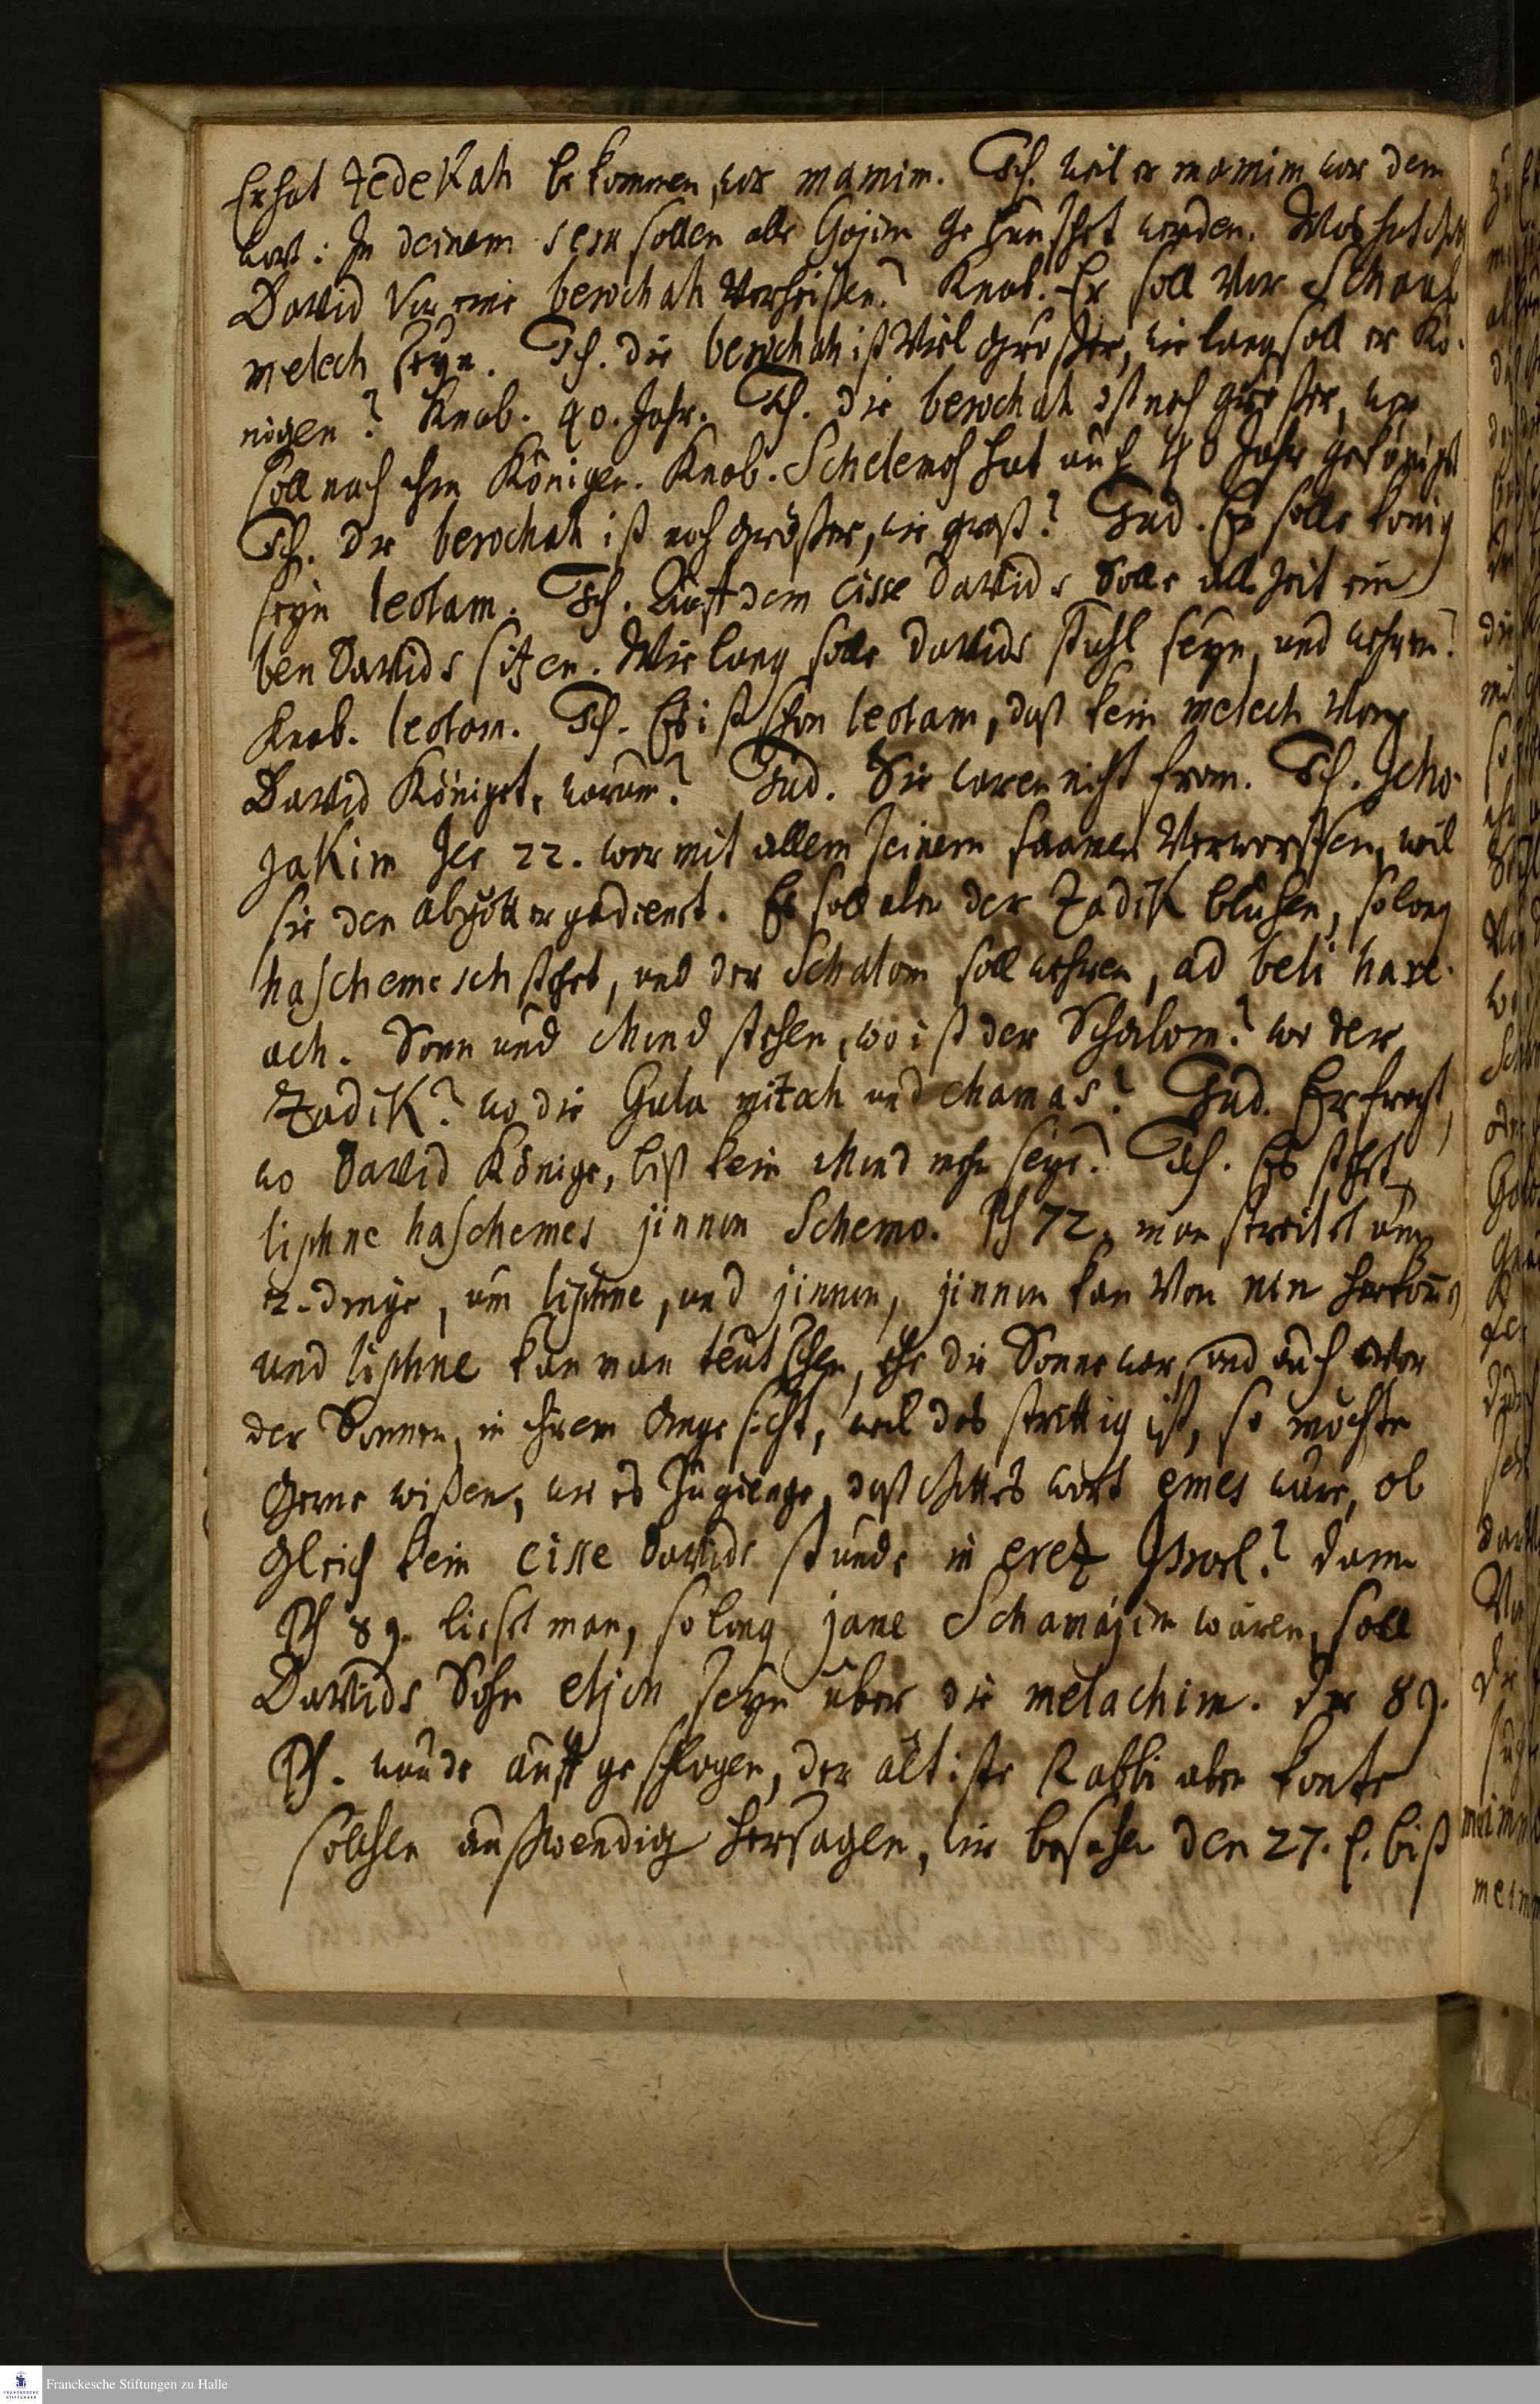 Er hat zedekah bekommen, war mamim. Ich. weil er mamim war dem
wort: In deinem sera sollen alle Gojim gebenschet werden. Was hat
David vor eine berochah verheißen? Knab. Er soll
melech seyn. Ich. die berochah ist viel größer, wie lang soll er Kö-
nigen? Knab. 40. Jahr. Ich. die berochah ist noch größer, wer
soll nach ihm Königen. Knab. Schelemoh hat auch 40 Jahr gekönigt
Ich. die berochah ist noch größer, wie groß? Jud. Er solle König
seyn leolam. Ich. Auf dem cisse Davids solle allzeit ein
ben Davids sitzen. Wie lang solle Davids stuhl seyn, und wehren?
Knab. leolam. Ich. Es ist schon leolam, daß kein melech von
David Königet, warum? Jud. Sie waren nicht from. Ich. Jeho-
jakim Jer 22. war mit allem seinem saamen verworffen, weil
sie den abgöttern gedienet. Es soll aber der Zadik blühen, so lang
haschemesch stehet, und der Schalom soll wehren, ad beli hare-
ach. Sonn und Mond stehen, wo ist der Schalom? wo der
Zadik? wo die Gula mitoch und chamas? Jud. Er fragt,
wo David Könige, biß kein Mond mehr seye? Ich. Es stehet
liphne haschemes jinnon Schemo. Ps 72. man streitet um
2. dinge, um liphne, und jinnon, jinnon kan von nin herkom̄en
und liphne kan man teutschen, ehe die Sonne war, und auch vor
der Sonnen, in ihrem Angesicht, weil das strittig ist, so möchte
Gerne wißen, wie es zugienge, daß Gottes wort emes wäre, ob
Gleich kein cisse Davids stunde in erez Jisroel? dann
Ps 89. lieset man, so lang jame Schamajim wären, soll
Davids Sohn eljon seyn über die melachim. der 89.
Ps. wurde auffgeschlagen, der ältiste Rabbi aber konte
solchen außwendig hersagen, wir besahen den 27. f. biß
Franckesche Stiftungen zu Halle